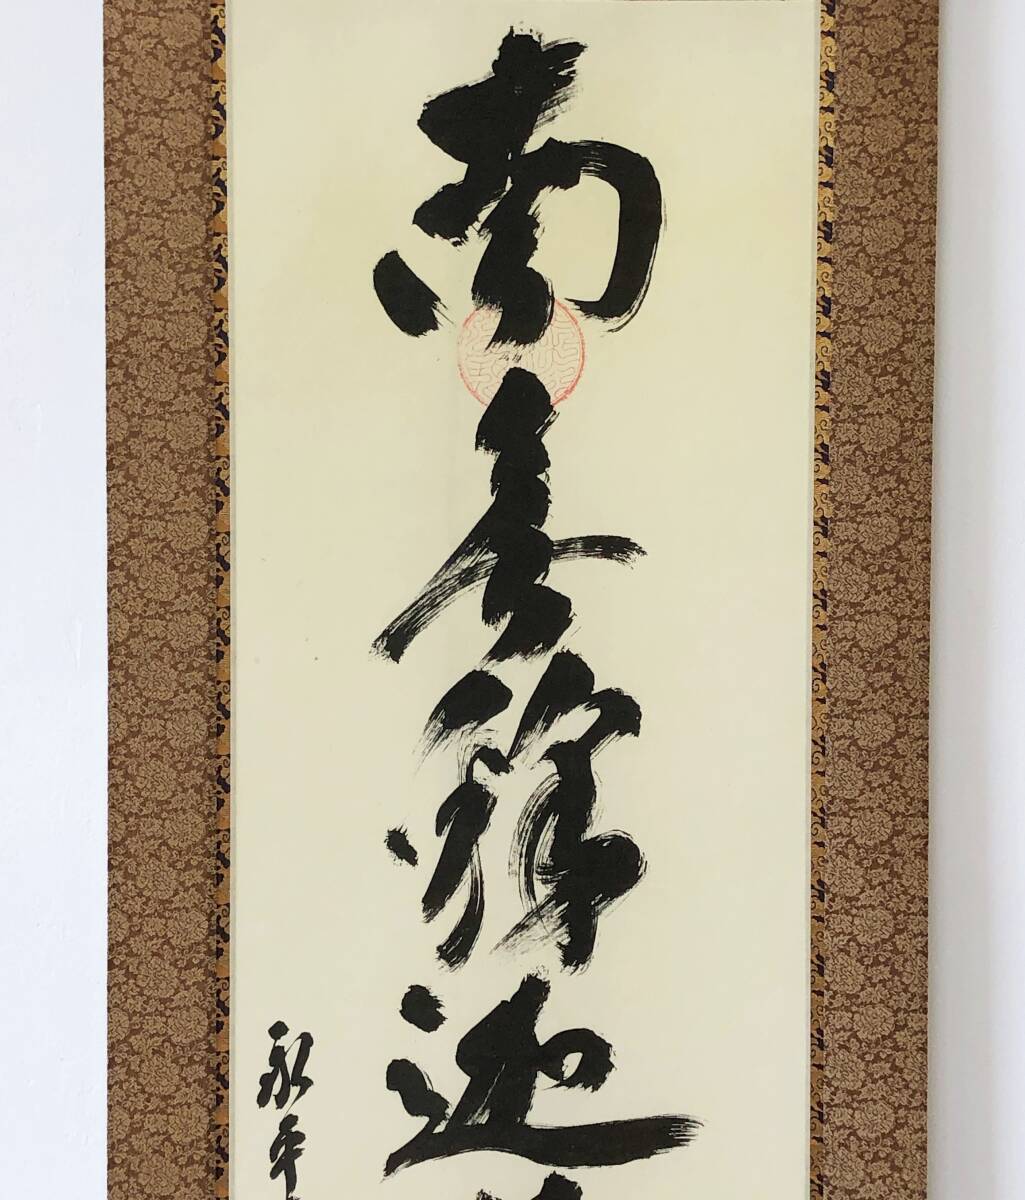 南無釋迦
永平